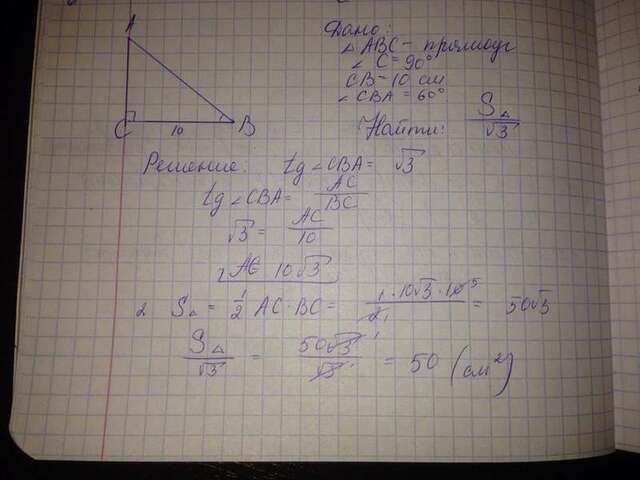 A
C
10
B
Дано:
△ABC - прямоуг
∠C = 90°
CB = 10 см
∠CBA = 60°
Найти: S△/√3
Решение: tg∠CBA = √3
tg∠CBA = AC/BC
√3 = AC/10
AC = 10√3
2 S△ = 1/2 AC·BC = 1·10√3·10 5/2 1 = 50√3
S△/√3 = 50√3 1/√3 1 = 50 (см²)